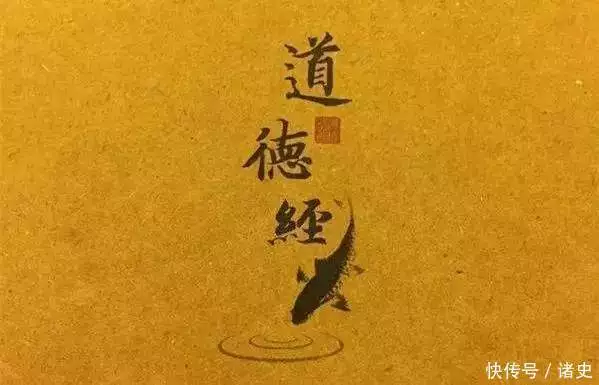 道
德
經
快传号/诸史